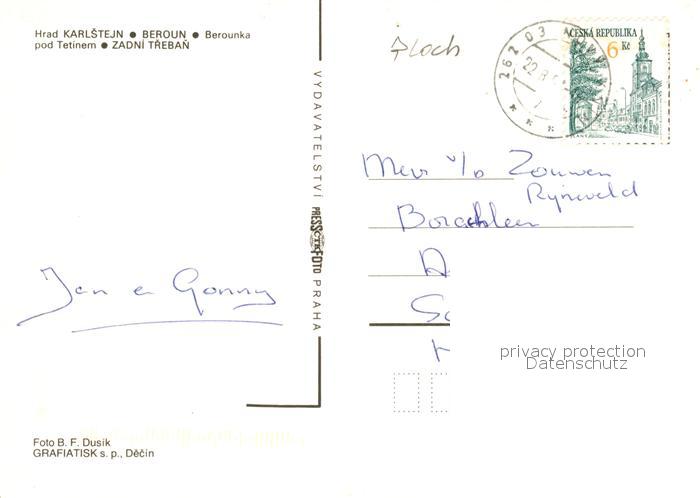 Hrad KARLŠTEJN ● BEROUN ● Berounka
pod Tetinem ● ZADNÍ TŘEBAŇ
VYDAVATELSTVÍ PRESSFOTO PRAHA
Jan en Gonny
Foto B. F. Dusík
GRAFIATISK s. p., Děčín
ČESKÁ REPUBLIKA
6 Kč
262 03
22.8
Mevr v/o Zouwen
Rijneveld
privacy protection
Datenschutz